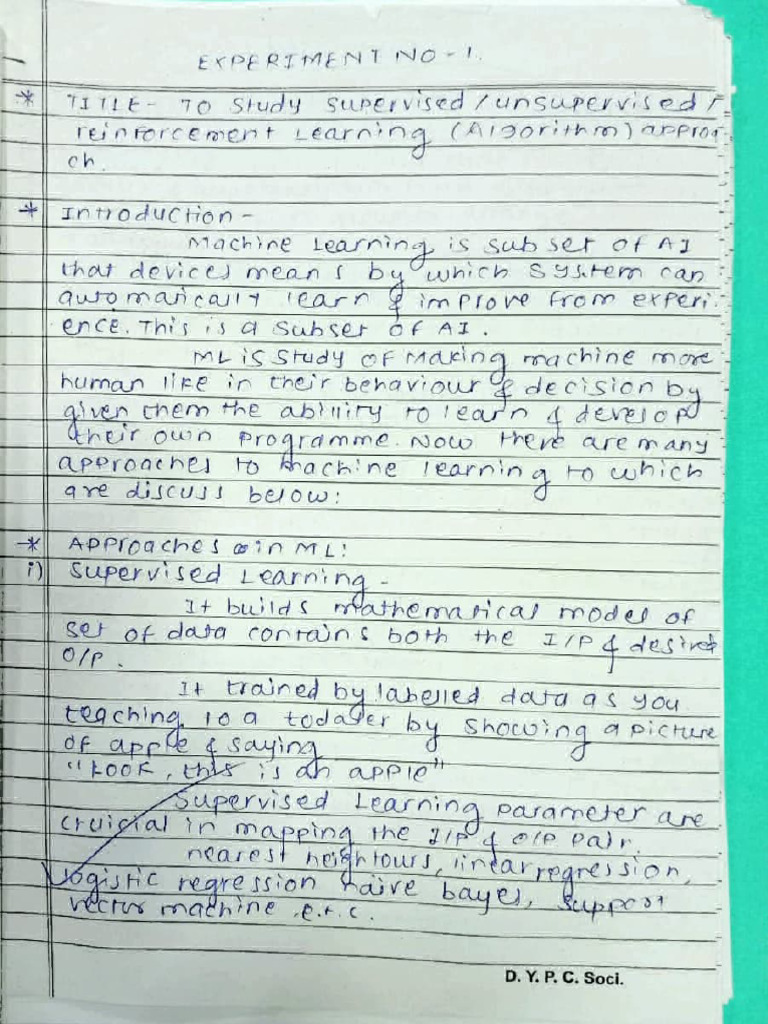 EXPERIMENT NO - 1.
* TITLE - To Study supervised / unsupervised /
reinforcement Learning (Algorithm) approa
ch.
* Introduction -
Machine Learning is subset of AI
that devices means by which System can
automatically learn & improve from experi-
ence. This is a subset of AI.
ML is study of Making machine more
human like in their behaviour & decision by
given them the ability to learn & develop
their own programme. Now there are many
approaches to machine learning to which
are discuss below:
* Approaches in ML:
i) Supervised Learning -
It builds mathematical modes of
set of data contains both the I/P & desired
O/P.
It trained by labelled data as you
teaching to a todaler by showing a picture
of apple & saying
"Look, this is an apple"
Supervised Learning parameter are
cruicial in mapping the I/P & O/P pair.
nearest neightours, linear regression,
logistic regression naive bayes, support
vector machine e.t.c.
D. Y. P. C. Soci.